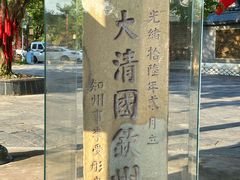 光緒拾陸年弍月立
大清國欽州
知州事